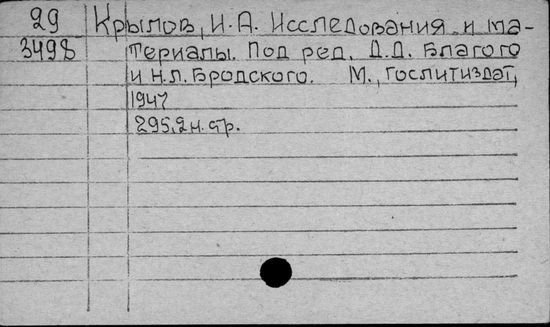 29 Крылов, И.А. Исследования и ма-
3498 териалы. Под ред. Д.Д. Благого
и Н.Л. Бродского. М., Гослитиздат,
1947
295,2н. стр.